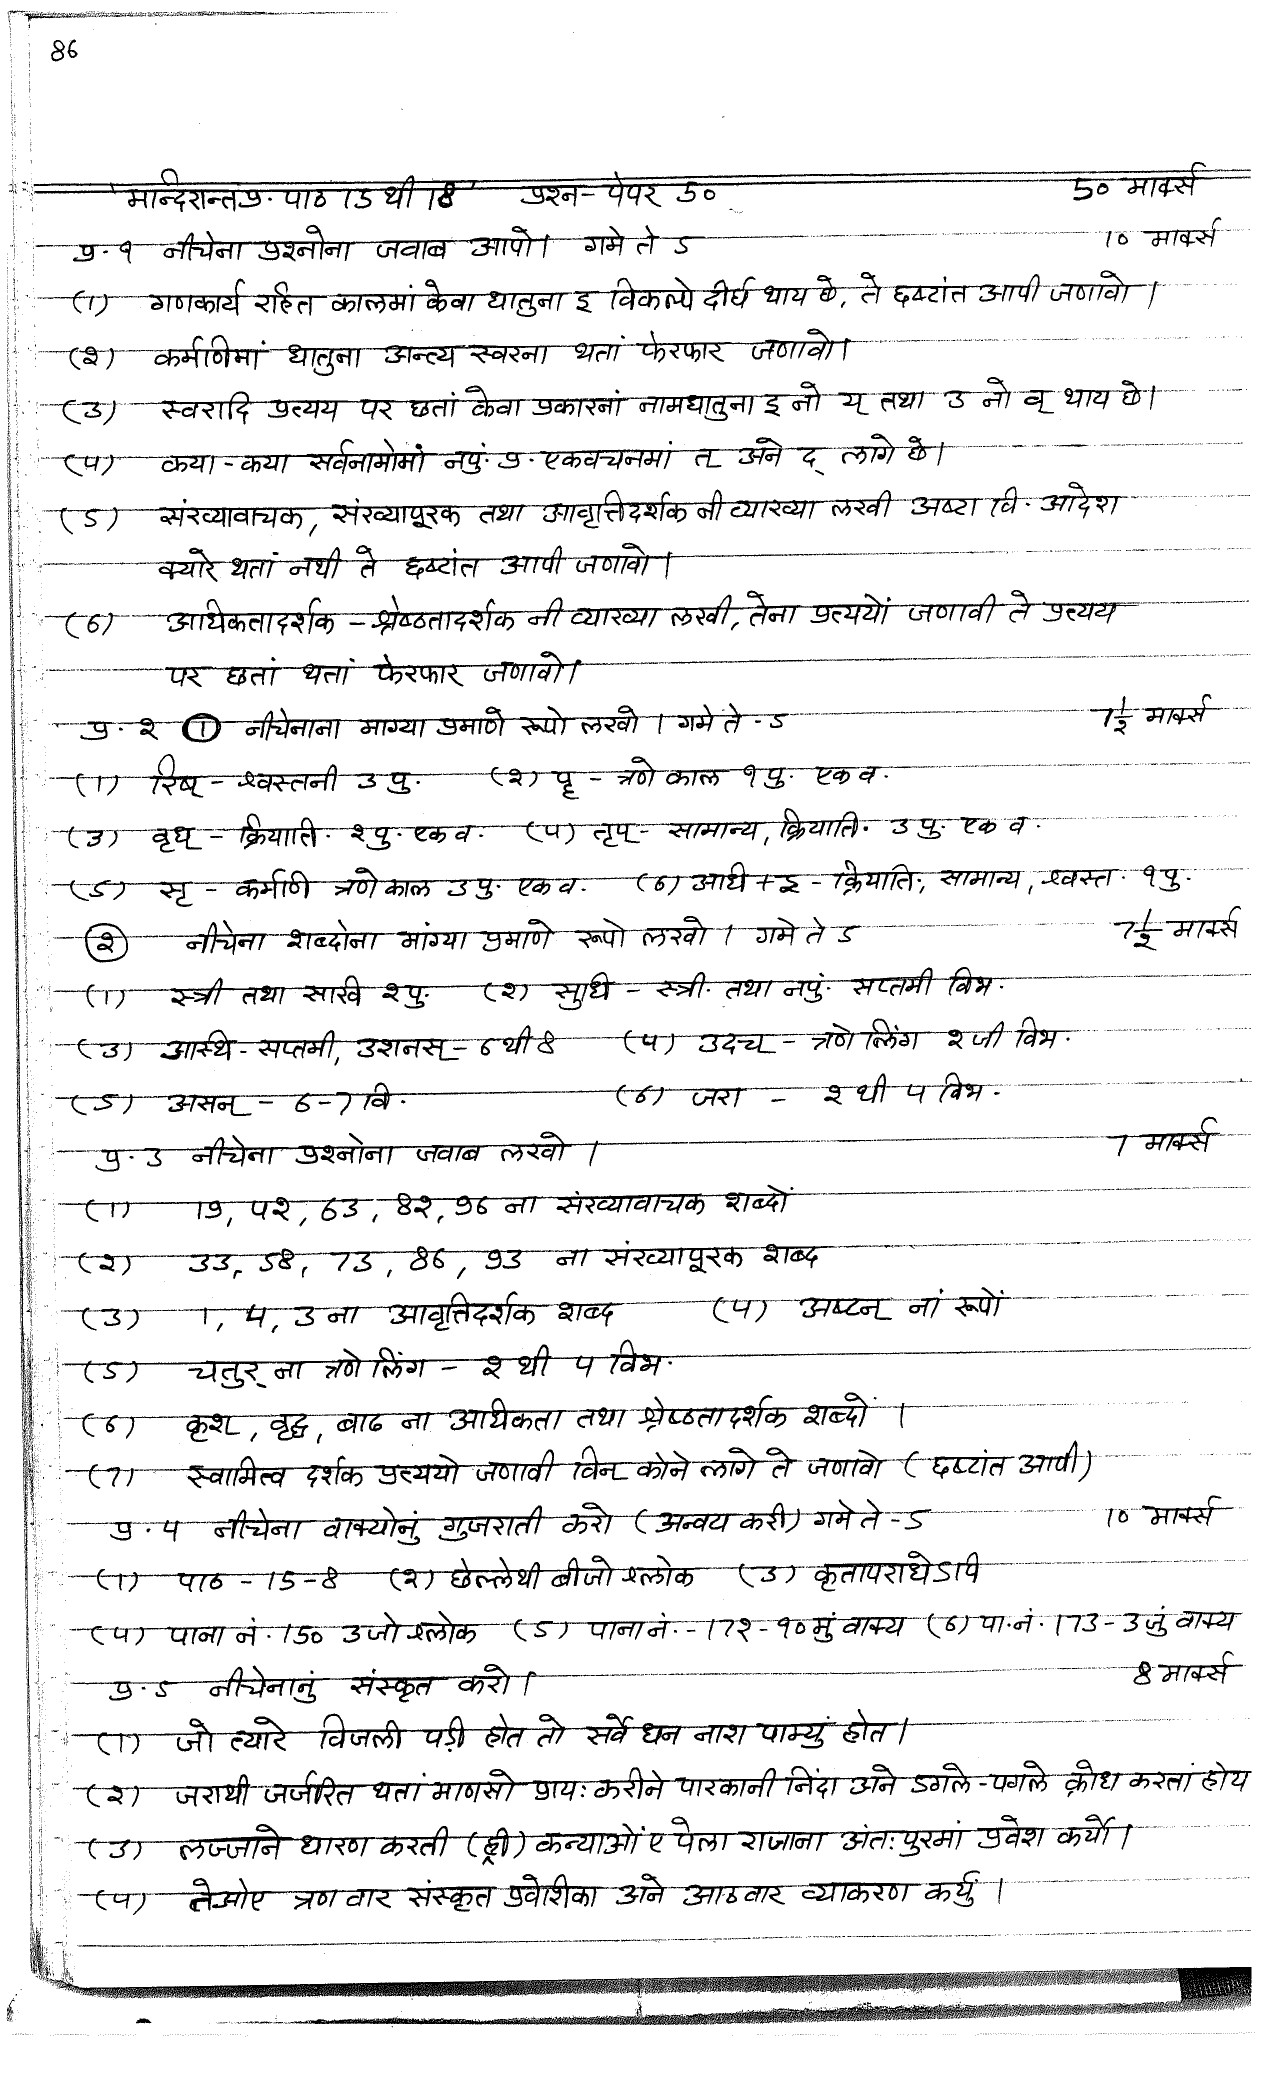 86
मन्दिरान्तप्र. पाठ 15 थी 18 प्रश्न - पेपर 50 50 मार्क्स
प्र. १ नीचेना प्रश्नोना जवाब आपो। गमे ते 5 10 मार्क्स
(1) गणकार्य रहित कालमां केवा धातुना इ विकल्पे दीर्घ थाय छे, ते दृष्टांत आपी जणावो।
(२) कर्मणिमां धातुना अन्त्य स्वरना थतां फेरफार जणावो।
(3) स्वरादि प्रत्यय पर छतां केवा प्रकारनां नामधातुना इ नो य् तथा उ नो व् थाय छे।
(५) कया - कया सर्वनामोमां नपुं. प्र. एकवचनमां त् अने द् लागे छे।
(5) संख्यावाचक, संख्यापूरक तथा आवृत्तिदर्शक नी व्याख्या लखी अष्टा वि. आदेश
क्यारे थतां नथी ते दृष्टांत आपी जणावो।
(6) अधिकतादर्शक - श्रेष्ठतादर्शक नी व्याख्या लखी, तेना प्रत्ययों जणावी ते प्रत्यय
पर छतां थतां फेरफार जणावो।
प्र. २ (1) नीचेनाना माग्या प्रमाणे रूपो लखो। गमे ते - 5 7 1/२ मार्क्स
(1) रिष् - श्वस्तनी 3 पु. (२) पॄ - त्रणे काल १ पु. एक व.
(3) वृध् - क्रियाति. २ पु. एक व. (५) तृप् - सामान्य, क्रियाति. 3 पु. एक व.
(5) सृ - कर्मणि त्रणे काल 3 पु. एक व. (6) अधि + इ - क्रियाति., सामान्य, श्वस्त. १ पु.
(२) नीचेना शब्दोना मांग्या प्रमाणे रूपो लखो। गमे ते 5 7 1/२ मार्क्स
(1) स्त्री तथा सखि २ पु. (२) सुधि - स्त्री. तथा नपुं. सप्तमी विभ.
(3) अस्थि - सप्तमी, उशनस् - 6 थी 8 (५) उदच् - त्रणे लिंग २ जी विभ.
(5) असन् - 6 - 7 वि. (6) जरा - २ थी ५ विभ.
प्र. 3 नीचेना प्रश्नोना जवाब लखो। 7 मार्क्स
(1) 19, ५२, 63, 8२, 96 ना संख्यावाचक शब्दों
(२) 33, 58, 73, 86, 93 ना संख्यापूरक शब्द
(3) 1, 4, 3 ना आवृत्तिदर्शक शब्द (५) अष्टन् नां रूपों
(5) चतुर् ना त्रणे लिंग - २ थी ५ विभ.
(6) कृश, वृद्ध, बाढ ना अधिकता तथा श्रेष्ठतादर्शक शब्दों।
(7) स्वामित्व दर्शक प्रत्ययो जणावी विन् कोने लागे ते जणावो (दृष्टांत आपी)
प्र. ५ नीचेना वाक्योनुं गुजराती करो (अन्वय करी) गमे ते - 5 10 मार्क्स
(1) पाठ - 15 - 8 (२) छेल्लेथी बीजो श्लोक (3) कृतापराधेऽपि
(५) पाना नं. 150 3 जो श्लोक (5) पाना नं. - 17२ - १० मुं वाक्य (6) पा. नं. 173 - 3 जुं वाक्य
प्र. 5 नीचेनानुं संस्कृत करो। 8 मार्क्स
(1) जो त्यारे विजली पडी होत तो सर्वे धन नाश पाम्युं होत।
(२) जराथी जर्जरित थतां माणसो प्रायः करीने पारकानी निंदा अने डगले - पगले क्रोध करतां होय
(3) लज्जाने धारण करती (ह्री) कन्याओंए पेला राजाना अंतःपुरमां प्रवेश कर्यो।
(५) तेओए त्रण वार संस्कृत प्रवेशिका अने आठ वार व्याकरण कर्युं।